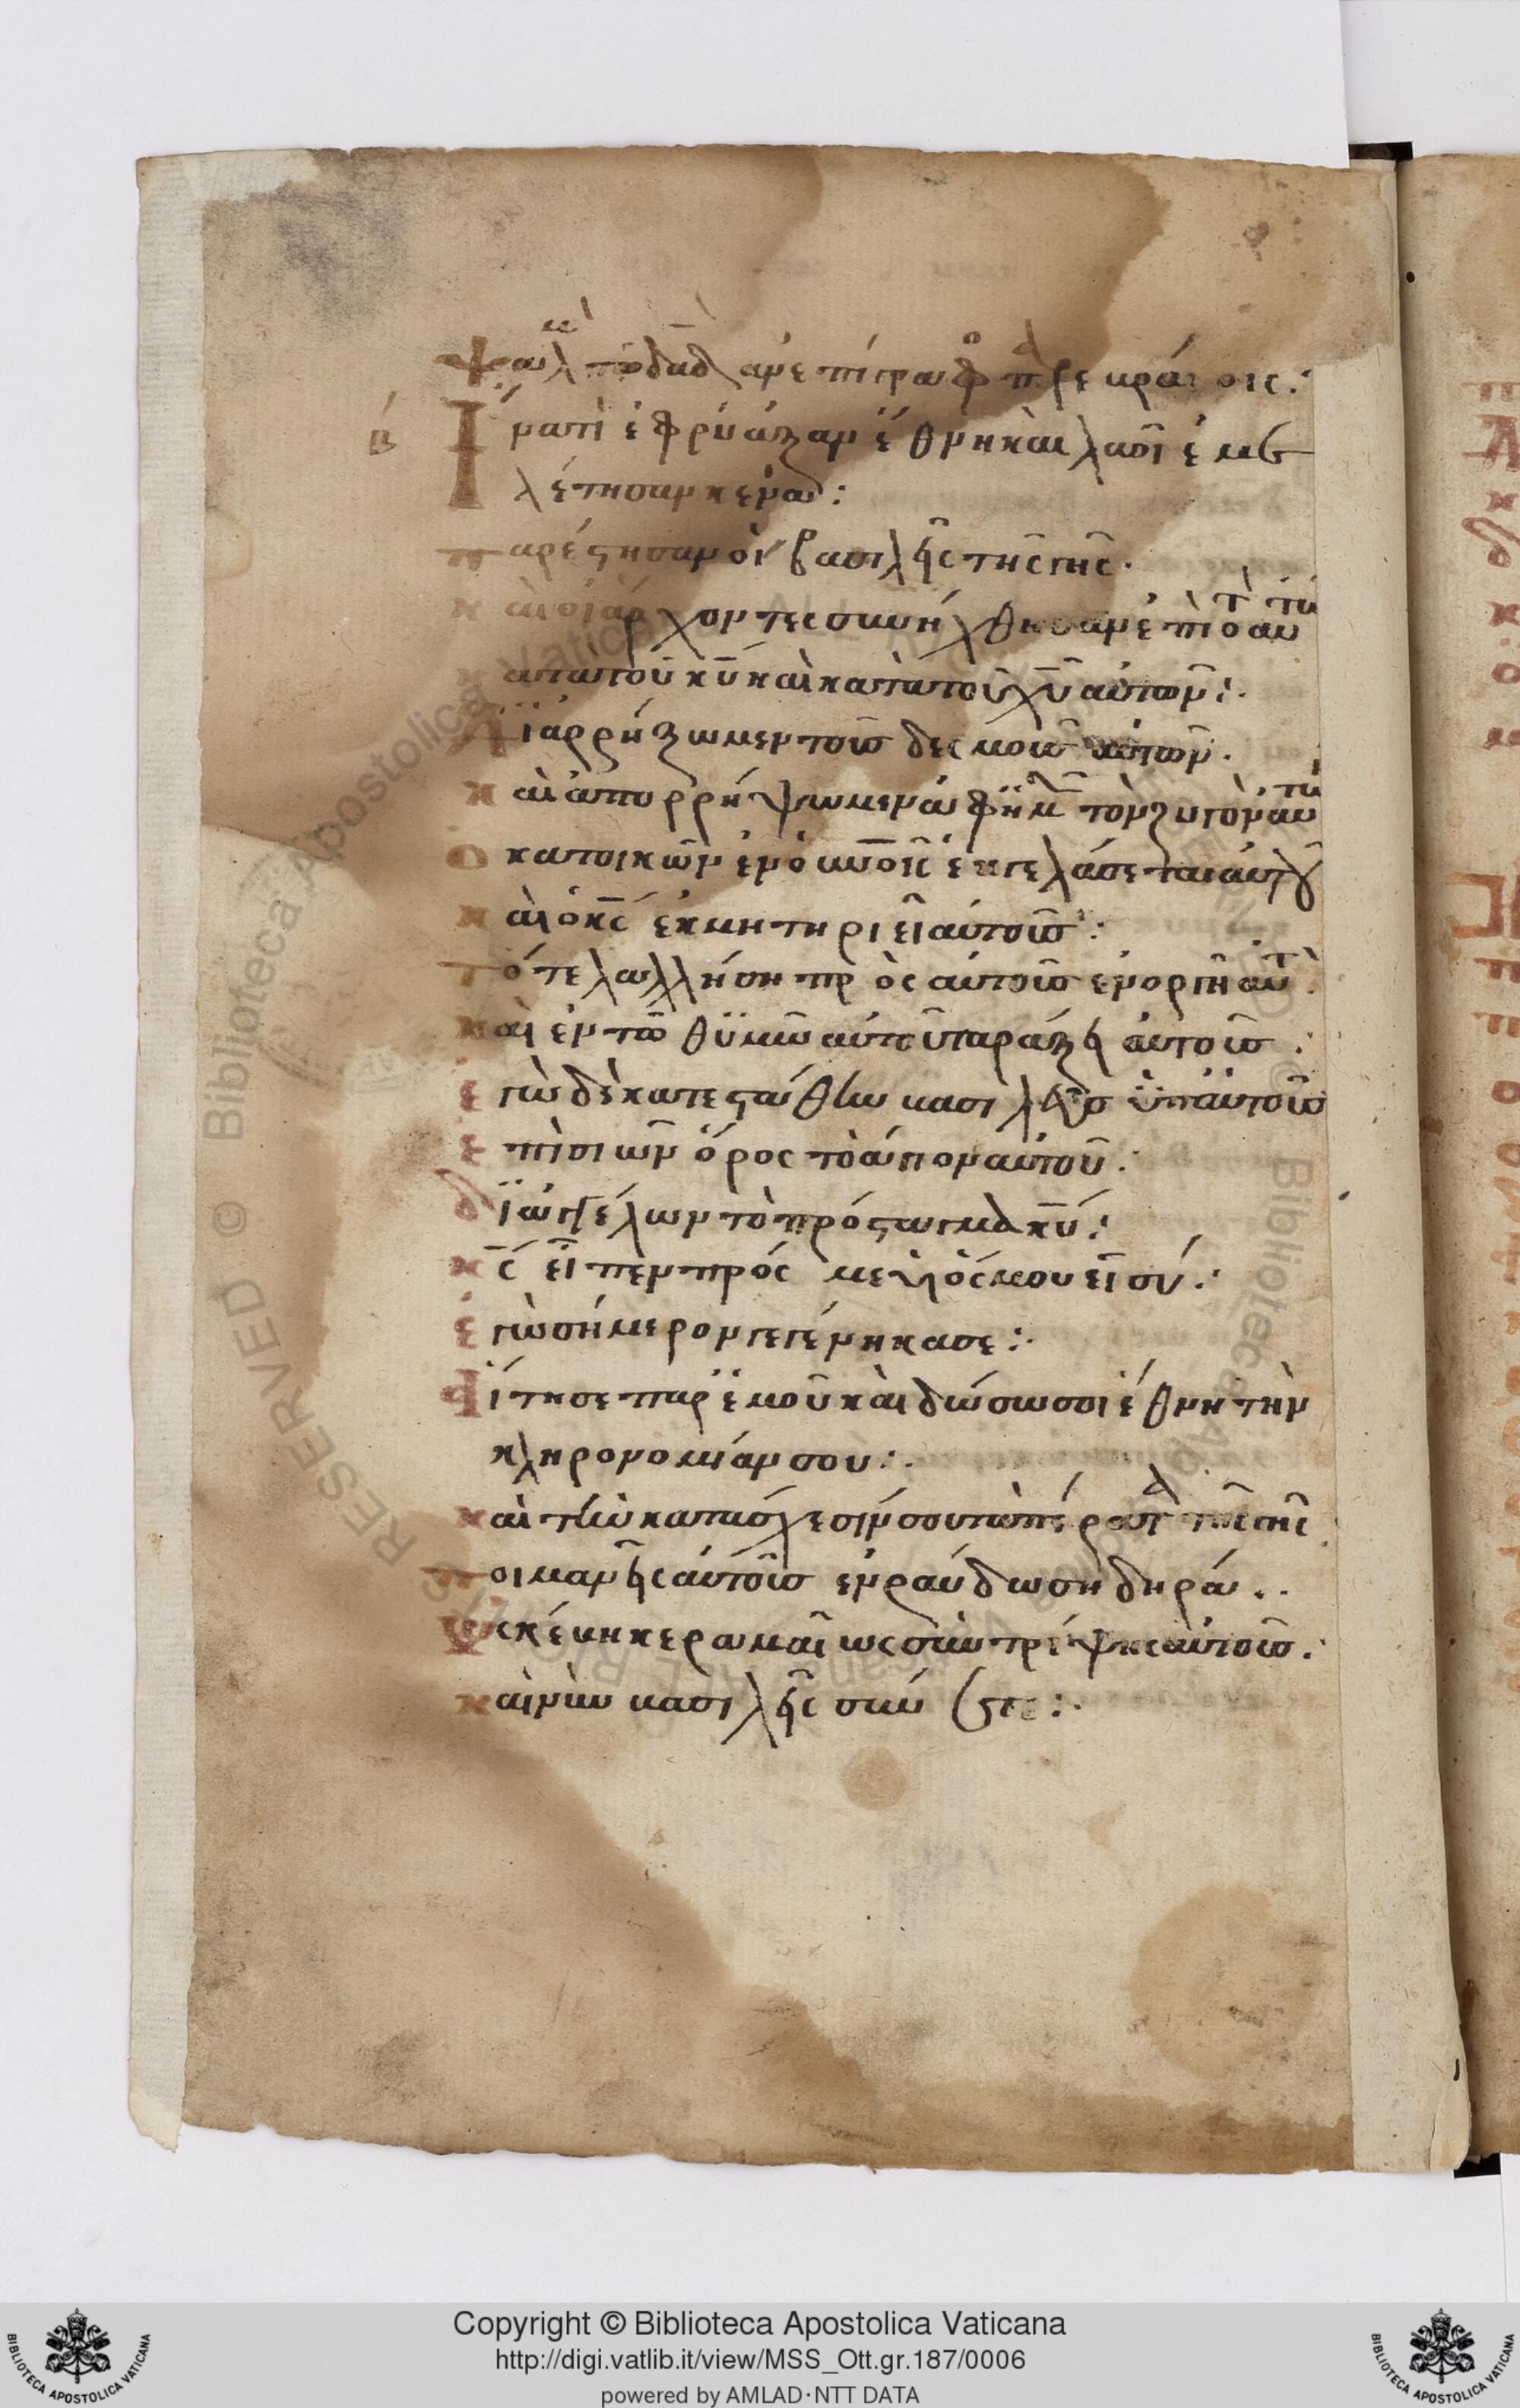 ψαλμὸς τῷ δαδ ἀνεπίγραφος παρ ἑβραίοις:
β
Ἱνατὶ ἐφρύαξαν ἔθνη καὶ λαοῖ ἐμε
λέτησαν κενά:
παρέστησαν οἱ βασιλεῖς τῆς γῆς.
καὶ οἱ ἄρχοντες συνήχθησαν ἐπὶ τὸ αυτὼ
κατατοῦ κυ καὶ κατὰ τοῦ χυ αὐτῶν:.
Διαρρήξωμεν τοῖς δεσμοῖς αὐτῶν.
καὶ ἀπορρήψωμεν ἀφ ημ τὸν ζυγὸν αυτῶ
ὁ κατοικῶν ἐν οὐνοῖς ἐκγελάσεται αὐτοῦ
καὶ ὁ κς ἐκμητηριεῖ αὐτοῖς:
τότε λαλλήση πρὸς αὐτοῖς ἐν οργῆ αὐτ.
καὶ ἐν τῶ θυμῶ αὐτοῦ ταράξει αὐτοῖς.
ἐγὼ δὲ κατεστάθην βασιλεῦς ὑπ αὐτοῖς
ἐπὶ σιῶν ὄρος τὸ ἅγιον αὐτοῦ:
διαγγέλων τὸ πρόσταγμα κυ:
κς εἶπεν πρός με υἱός μου εἶ σύ:
ἐγὼ σήμερον γεγένηκα σε:.
αἴτησε παρ ἐμοῦ καὶ δώσω σοι ἔθνη τὴν
κληρονομίαν σου:.
καὶ τὴν κατάσχεσίν σου τὰ πέρατ τῆς γῆς
ποιμανεῖς αὐτοῖς ἐν ραύδω σηδηρά..
ὡς σκέβη κεραμαῖως σὺντρίψεις αὐτοῖς:
καὶ νῦν βασιλεῖς σύνετε:.
Copyright © Biblioteca Apostolica Vaticana
http://digi.vatlib.it/view/MSS_Ott.gr.187/0006
powered by AMLAD·NTT DATA
BIBLIOTECA APOSTOLICA VATICANA
BIBLIOTECA APOSTOLICA VATICANA